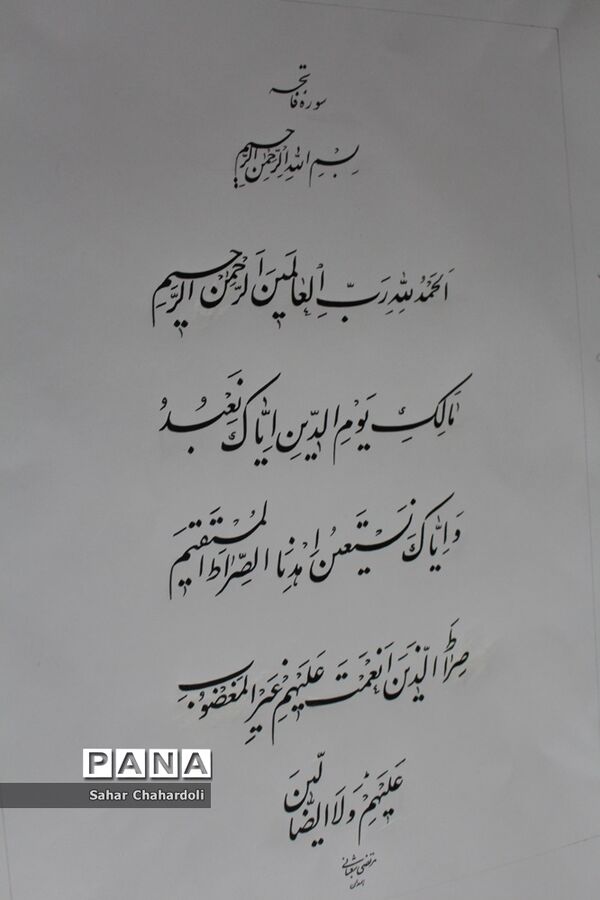 سوره فاتحه
بِسْمِ اللهِ الرَّحْمٰنِ الرَّحِيمِ
اَلحَمْدُ لِلّٰهِ رَبِّ الْعٰالَمينَ اَلرَّحْمٰنِ الرَّحيمِ
مٰالِكِ يَوْمِ الدّينِ اِيّٰاكَ نَعْبُدُ
وَ اِيّٰاكَ نَسْتَعينُ اِهْدِنَا الصِّرٰاطَ الْمُسْتَقيمَ
صِرٰاطَ الَّذينَ اَنْعَمْتَ عَلَيْهِمْ غَيْرِ الْمَغْضُوبِ
عَلَيْهِمْ وَلَا الضّٰالّينَ
مرتضی
PANA
Sahar Chahardoli